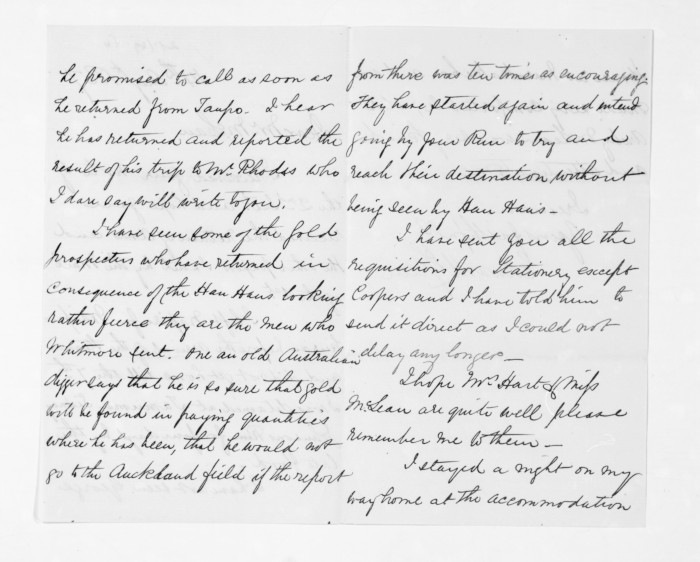 he promised to call as soon as
he returned from Taupo. I hear
he has returned and reported the
result of his trip to Mr. Rhodes who
I dare say will write to you.
I have seen some of the Gold
prospecters who have returned in
consequence of the Hau Haus looking
rather fierce they are the men who
Whitmore sent. One an old Australian
digger says that he is so sure that gold
will be found in paying quantities
where he has been, that he would not
go to the Auckland field if the report
from there was ten times as encouraging.
They have started again and intend
going by your Run to try and
reach their destination without
being seen by Hau Haus -
I have sent you all the
requisitions for Stationery except
Coopers and I have told him to
send it direct as I could not
delay any longer -
I hope Mrs. Hart & Miss
McLean are quite well please
remember me to them -
I stayed a night on my
way home at the accommodation